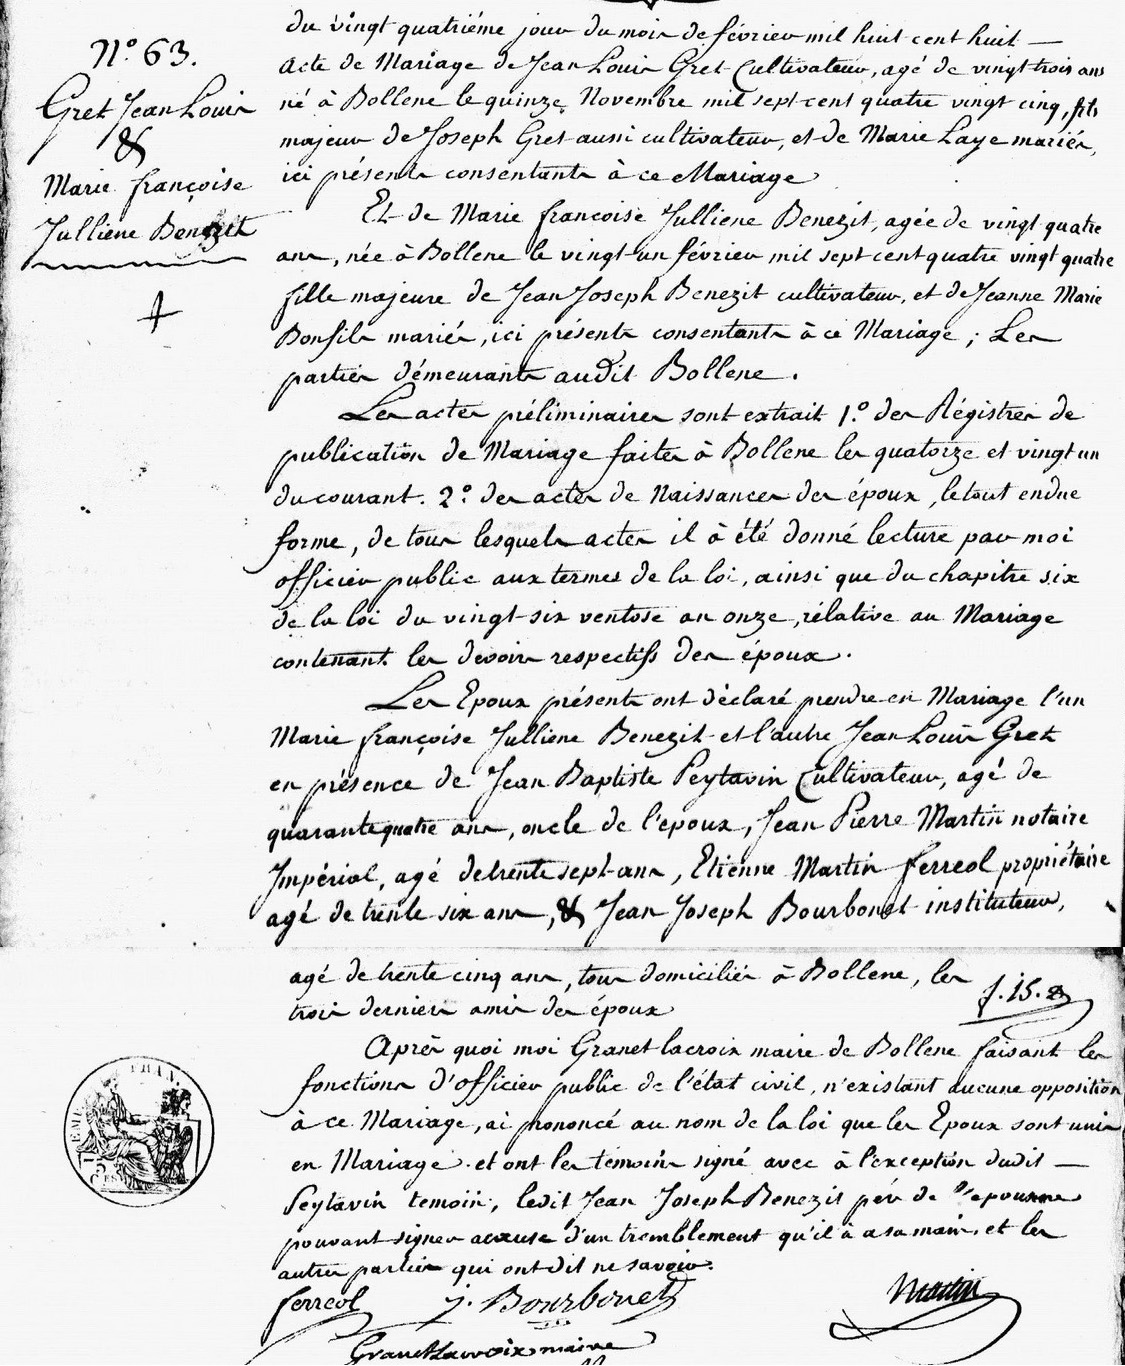 N.° 63.
Gret Jean Louis
&
Marie françoise
Julliene Benezit
du vingt quatriéme jour du mois de février mil huit cent huit —
Acte de Mariage de Jean Louis Gret Cultivateur, agé de vingt trois ans
né à Bollene le quinze Novembre mil sept cent quatre vingt cinq, fils
majeur de Joseph Gret aussi cultivateur, et de Marie Laye mariés,
ici présents consentants à ce Mariage
Et de Marie francoise Julliene Benezit, agée de vingt quatre
ans, née à Bollene le vingt-un février mil sept cent quatre vingt quatre
fille majeure de Jean Joseph Benezit cultivateur, et de Jeanne Marie
Bonfils mariés, ici présents consentants à ce Mariage ; Les
parties démeurants audit Bollene.
Les actes préliminaires sont extrait 1.° des Régistres de
publication de Mariage faites à Bollene les quatorze et vingt un
du courant. 2.° des actes de Naissances des époux, le tout endue
forme, de tous lesquels actes il à été donné lecture par moi
officier public aux termes de la loi, ainsi que du chapitre six
de la loi du vingt-six ventose an onze, rélative au Mariage
contenant les devoirs respectifs des époux.
Les Epoux présents ont déclaré prendre en Mariage l'un
Marie françoise Julliene Benezit et l'autre Jean Louis Gret
en présence de Jean Baptiste Peytavin Cultivateur, agé de
quarante quatre ans, oncle de l'epoux, Jean Pierre Martin notaire
Impérial, agé de trente sept ans, Etienne Martin ferreol propriétaire
agé de trente six ans, & Jean Joseph Bourbonet instituteur,
agé de trente cinq ans, tous domiciliés à Bollene, les
trois derniers amis des époux
f. 15.
Après quoi moi Granet lacroix maire de Bollene faisant les
fonctions d'officier public de l'état civil, n'existant aucune opposition
à ce Mariage, ai prononcé au nom de la loi que les Epoux sont unis
en Mariage. et ont les témoins signé avec à l'exception dudit —
Peytavin temoin, ledit Jean Joseph Benezit pér de l'epouse ne
pouvant signer acause d'un tremblement qu'il à a sa main, et les
autres parties qui ont dit ne savoir.
ferreol J. Bourbonet Martin
Granet Lacroix maire